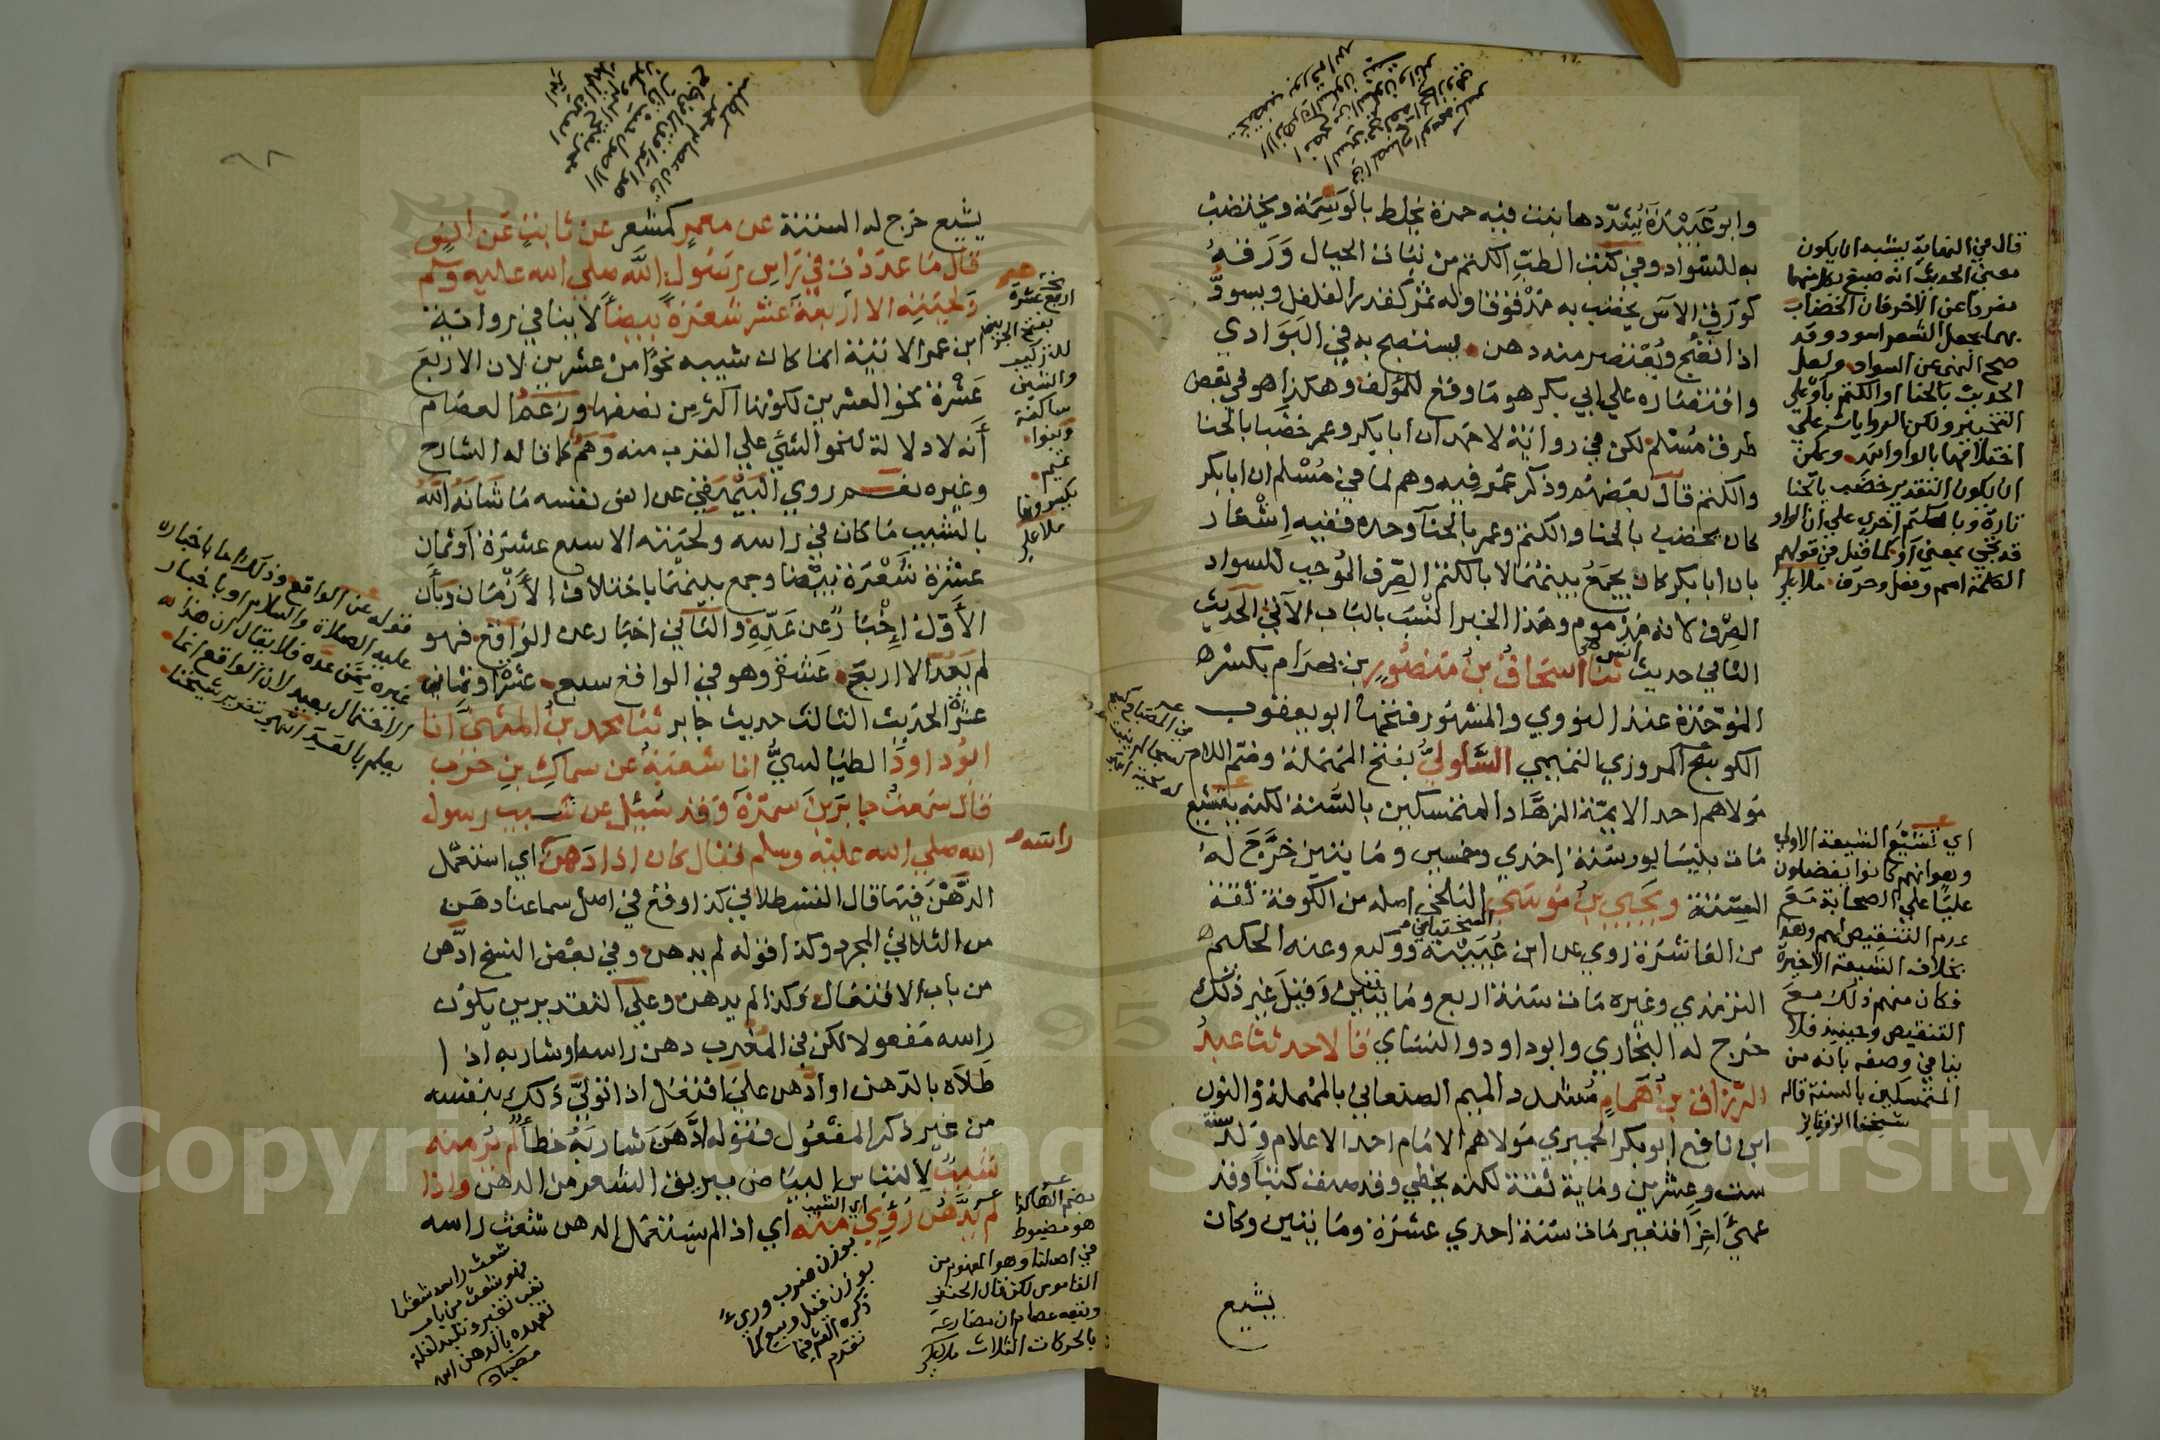 وابو عبيدة يشددها نبت فيه حمرة يخلط بالوسمة ويختضب
به للسواد وفي كتب الطب الكتم من نبات الجبال ورقه
كورق الآس يخضب به مدقوقا وله ثمر كقدر الفلفل ويسود
اذا نضج ويعتصر منه دهن يستصبح به في البوادي
وافتصاره علي ابي بكر هو ما وقع للمؤلف وهكذا هو في بعض
طرق مسلم لكن في رواية لاحمد ان ابا بكر وعمر خضبا بالحنا
والكتم قال بعضهم وذكر عمر فيه وهم لما في مسلم ان ابا بكر
كان يخضب بالحنا والكتم وعمر بالحنآ وحده ففيه اشعار
بان ابا بكر كان يجمع بينهما لا بالكتم الصرف الموجب للسواد
الصرف لانه مذموم وهذا الخبر انسب بالباب الآتي الحديث
الثاني حديث انس ثنا اسحاق بن منصور بن بهرام بكسر
الموحدة عند النووي والمشهور فتحها ابو يعقوب
الكوسج المروزي التميمي السلولي بفتح المهملة وضم اللام
مولاهم احد الايمة الزهاد المتمسكين بالسنة لكنه يتشيع
مات بنيسابور سنة احدي وخمسين ومايتين خرج له
الستة ويحيي بن موسي البلخي اصله من الكوفة ثقة
من العاشرة روي عن ابن عيينة ووكيع وعنه الحكيم
الترمذي وغيره مات سنة اربع ومايتين وقيل غير ذلك
خرج له البخاري وابو داود والنساي قالا حدثنا عبد
الرزاق بن همام مشدد الميم الصنعاني بالمهملة والنون
ابن نافع ابو بكر الحميري مولاهم الامام احد الاعلام ولد سنة
ست وعشرين وماية ثقة لكنه يخطي وقد صنف كتبا وقد
عمي اخرا فتغير مات سنة احدي عشرة ومايتين وكان
يشيع
قال في النهاية يشبه ان يكون
معني الحديث انه صبغ بكل منهما
مفردا عن الاخر فان الخضاب
بهما يجعل الشعر اسود وقد
صح النهي عن السواد ولعل
الحديث بالحنا او الكتم باو علي
التخيير ولكن الروايات علي
اختلافها بالواو انتهي ويمكن
ان يكون التقدير خضب بالحنا
تارة وبالكتم اخري علي ان الواو
قد تجي بمعني او كما قيل في قولهم
الكلمة اسم وفعل وحرف ملا علي
اي تشيع الشيعة الاولي
وهو انهم كانوا يفضلون
عليا علي الصحابة مع
عدم التنقيص لهم وهذا
بخلاف الشيعة الاخيرة
فكان منهم ذلك مع
التنقيص وحينيذ فلا
ينافي وصفه بانه من
المتمسكين بالسنة قاله
شيخنا الزرقاني
يشيع خرج له الستة عن معمر كمشعر عن ثابت عن انس
قال ما عددت في راس رسول الله صلي الله عليه وسلم
ولحيته الا اربعة عشر شعرة بيضا لا ينافي رواية
ابن عمر الاتية انما كان شيبه نحوا من عشرين لان الاربع
عشرة نحو العشرين لكونها اكثر من نصفها وزعم العصام
أنه لا دلالة لنحو الشي علي القرب منه وهم كما قاله الشارح
وغيره نعم روي البيهقي عن انس نفسه ما شانه الله
بالشيب ما كان في راسه ولحيته الا سبع عشرة او ثمان
عشرة شعرة بيضا وجمع بينهما باختلاف الأزمان وبأن
الأول إخبار عن عده والثاني اخبار عن الواقع فهو
لم يعد الا اربع عشرة وهو في الواقع سبع عشرة او ثمان
عشرة الحديث الثالث حديث جابر ثنا محمد بن المثني انا
ابو داود الطيالسي انا شعبة عن سماك بن حرب
قال سمعت جابر بن سمرة وقد سئل عن شيب رسول
الله صلي الله عليه وسلم فقال كان اذا دهن راسه اي استعمل
الدهن فيها قال القسطلاني كذا وقع في اصل سماعنا دهن
من الثلاثي المجرد وكذا قوله لم يدهن وفي بعض النسخ ادهن
من باب الافتعال وكذا لم يدهن وعلي التقديرين يكون
راسه مفعولا لكن في المغرب دهن راسه وشاربه اذا
طلاه بالدهن او ادهن علي افتعل اذا تولي ذلك بنفسه
من غير ذكر المفعول فقوله ادهن شاربه خطأ لم ير منه
شيب لالتباس البياض ببريق الشعر من الدهن واذا
لم يدهن رؤي منه اي الشيب اي اذا لم يستعمل الدهن شعث راسه
اربع عشرة
بفتح الجزئين
للتركيب
والشين
ساكنة
وبنوا
تميم
يكسرونها
ملا علي
قوله عن الواقع وذلك اما باخباره
عليه الصلاة والسلام او باخبار
غيره ممن عده فلا يقال ان هذا
الاحتمال بعيد لان الواقع انما
يعلم بالعد انتهي تقرير شيخنا
بضم الهاء كذا
هو مضبوط
في اصلنا وهو المفهوم من
القاموس لكن قال الحنفي
وتبعه عصام ان مضارعه
بالحركات الثلاث ملا علي
بوزن ضرب وريء
بوزن قيل وبيع كما
ذكره الشم فيما
تقدم
شعث راسه شعثا
فهو شعث من باب
تعب تغير وتلبد لقلة
تعهده بالدهن اهـ
مصباح